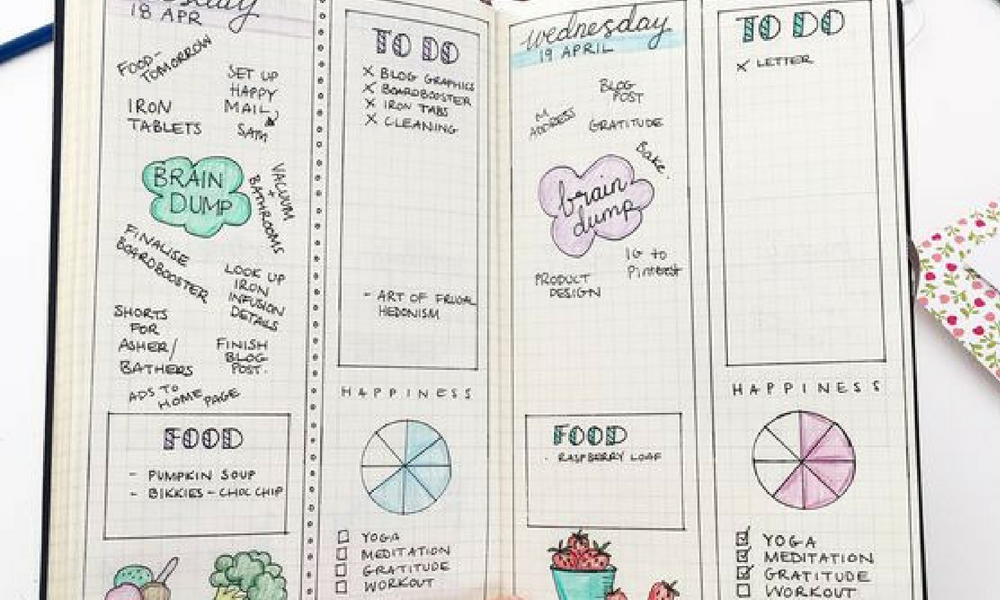 18 APR
FOOD-
TOMORROW
SET UP
HAPPY
MAIL
SAM
IRON
TABLETS
BRAIN
DUMP
VACUUM
+
BATHROOMS
FINALISE
BOARDBOOSTER
LOOK UP
IRON
INFUSION
DETAILS
SHORTS
FOR
ASHER/
BATHERS
FINISH
BLOG
POST.
ADS TO
HOME PAGE
FOOD
- PUMPKIN SOUP
- BIKKIES - CHOC CHIP
TO DO
X BLOG GRAPHICS
X BOARDBOOSTER
X IRON TABS
X CLEANING
- ART OF FRUGAL
HEDONISM
HAPPINESS
YOGA
MEDITATION
GRATITUDE
WORKOUT
wednesday
19 APRIL
BLOG
POST
ADDRESS
GRATITUDE
Bake.
brain
dump
IG to
Pinterest
PRODUCT
DESIGN
FOOD
- RASPBERRY LOAF
TO DO
X LETTER
HAPPINESS
YOGA
MEDITATION
GRATITUDE
WORKOUT